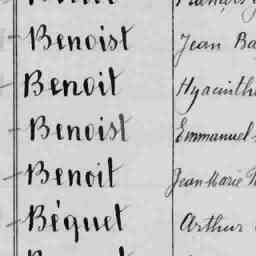 Benoist Jean Ba
Benoit Hyacinth
Benoist Emmanuel
Benoit Jean Marie
Béquet Arthur